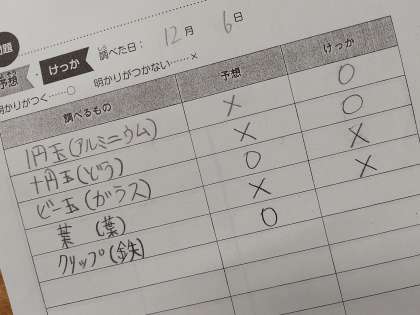 問題
予想・けっか 調べた日： 12月 6日
明かりがつく……○ 明かりがつかない……×
調べるもの 予想 けっか
1円玉(アルミニウム) × ○
十円玉(どう) × ○
ビー玉(ガラス) ○ ×
葉 (葉) × ×
クリップ(鉄) ○